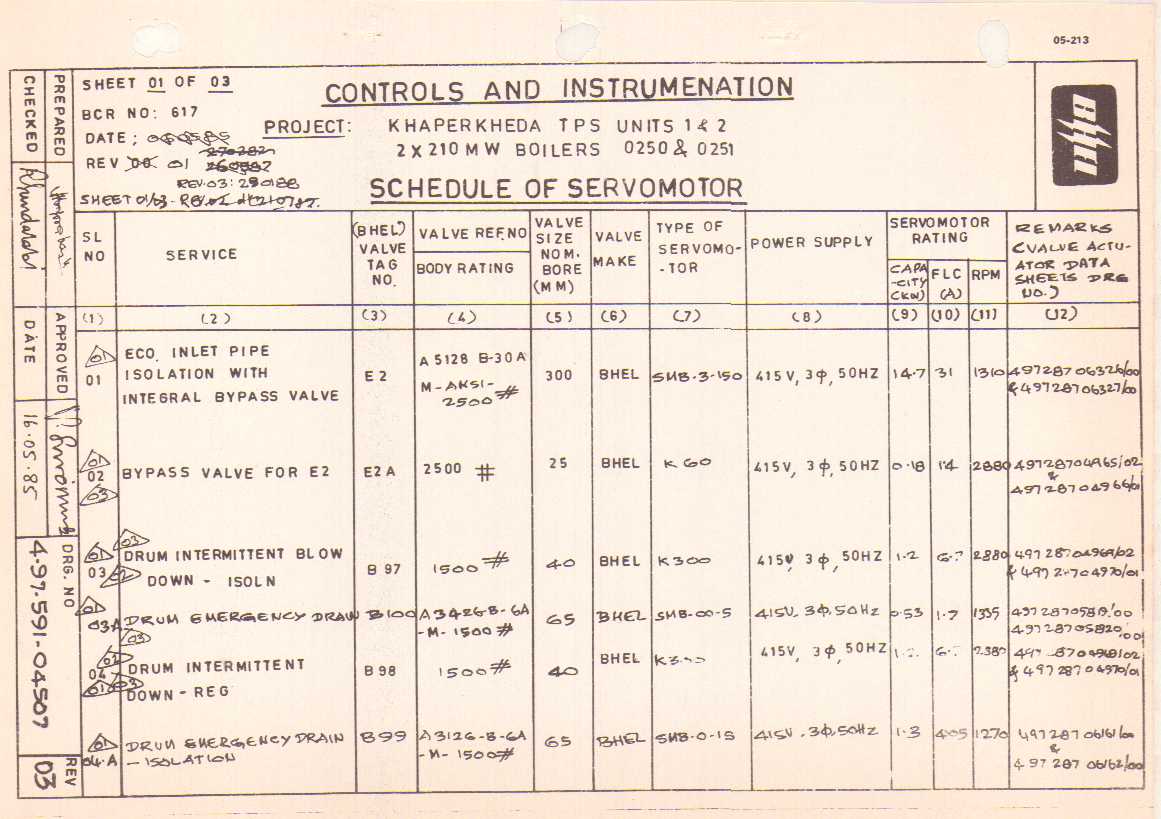 05-213
SHEET 01 OF 03
BCR NO: 617
DATE;
REV 00 01
REV.03: 290188
SHEET 01/03 - REV.02 dt 210787.
CONTROLS AND INSTRUMENATION
PROJECT: KHAPERKHEDA TPS UNITS 1 & 2
2 X 210 MW BOILERS 0250 & 0251
SCHEDULE OF SERVOMOTOR
BHEL
CHECKED
PREPARED
DATE
16.05.85
APPROVED
DRG. NO
4-97-591-04507
REV
03
SL NO
SERVICE
(BHEL) VALVE TAG NO.
VALVE REF. NO
BODY RATING
VALVE SIZE NOM. BORE (MM)
VALVE MAKE
TYPE OF SERVOMO--TOR
POWER SUPPLY
SERVOMOTOR RATING
CAPA-CITY (KW)
FLC (A)
RPM
REMARKS (VALVE ACTU-ATOR DATA SHEETS DRG NO.)
(1) (2) (3) (4) (5) (6) (7) (8) (9) (10) (11) (12)
01 01 ECO. INLET PIPE ISOLATION WITH INTEGRAL BYPASS VALVE E2 A 5128 B-30A M-AKSI-2500 # 300 BHEL SMB-3-150 415 V, 3ϕ, 50HZ 14.7 31 1310 49728706326/00 & 49728706327/00
01 02 03 BYPASS VALVE FOR E2 E2A 2500 # 25 BHEL K 60 415V, 3ϕ, 50HZ 0.18 1.4 2880 49728704965/02 & 49728704966/01
03 01 03 02 DRUM INTERMITTENT BLOW DOWN - ISOLN B 97 1500 # 40 BHEL K300 415V, 3ϕ, 50HZ 1.2 2880 49728704969/02 & 49728704970/01
01 03A 03 DRUM EMERGENCY DRAIN B100 A3426-B-6A -M-1500 # 65 BHEL SMB-00-5 415V, 3ϕ, 50HZ 0.53 1.7 1335 49728705819/00 49728705820/00
02 04 01 03 DRUM INTERMITTENT DOWN - REG B 98 1500 # 40 BHEL 415V, 3ϕ, 50HZ & 49728704970/01
01 04.A DRUM EMERGENCY DRAIN - ISOLATION B99 A3126-B-6A -M-1500 # 65 BHEL SMB-0-15 415V, 3ϕ, 50HZ 1.3 4.05 1270 49728706161/00 & 49728706162/00